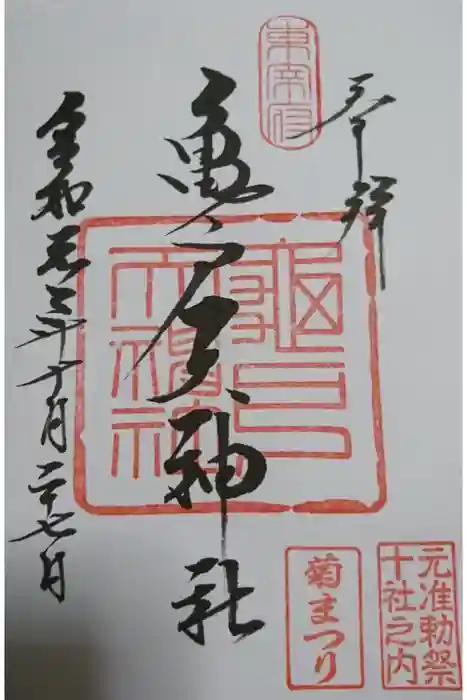 東宰府
奉拝
亀戸天神社
令和元年十月二十七日
元准勅祭
十社之内
菊まつり